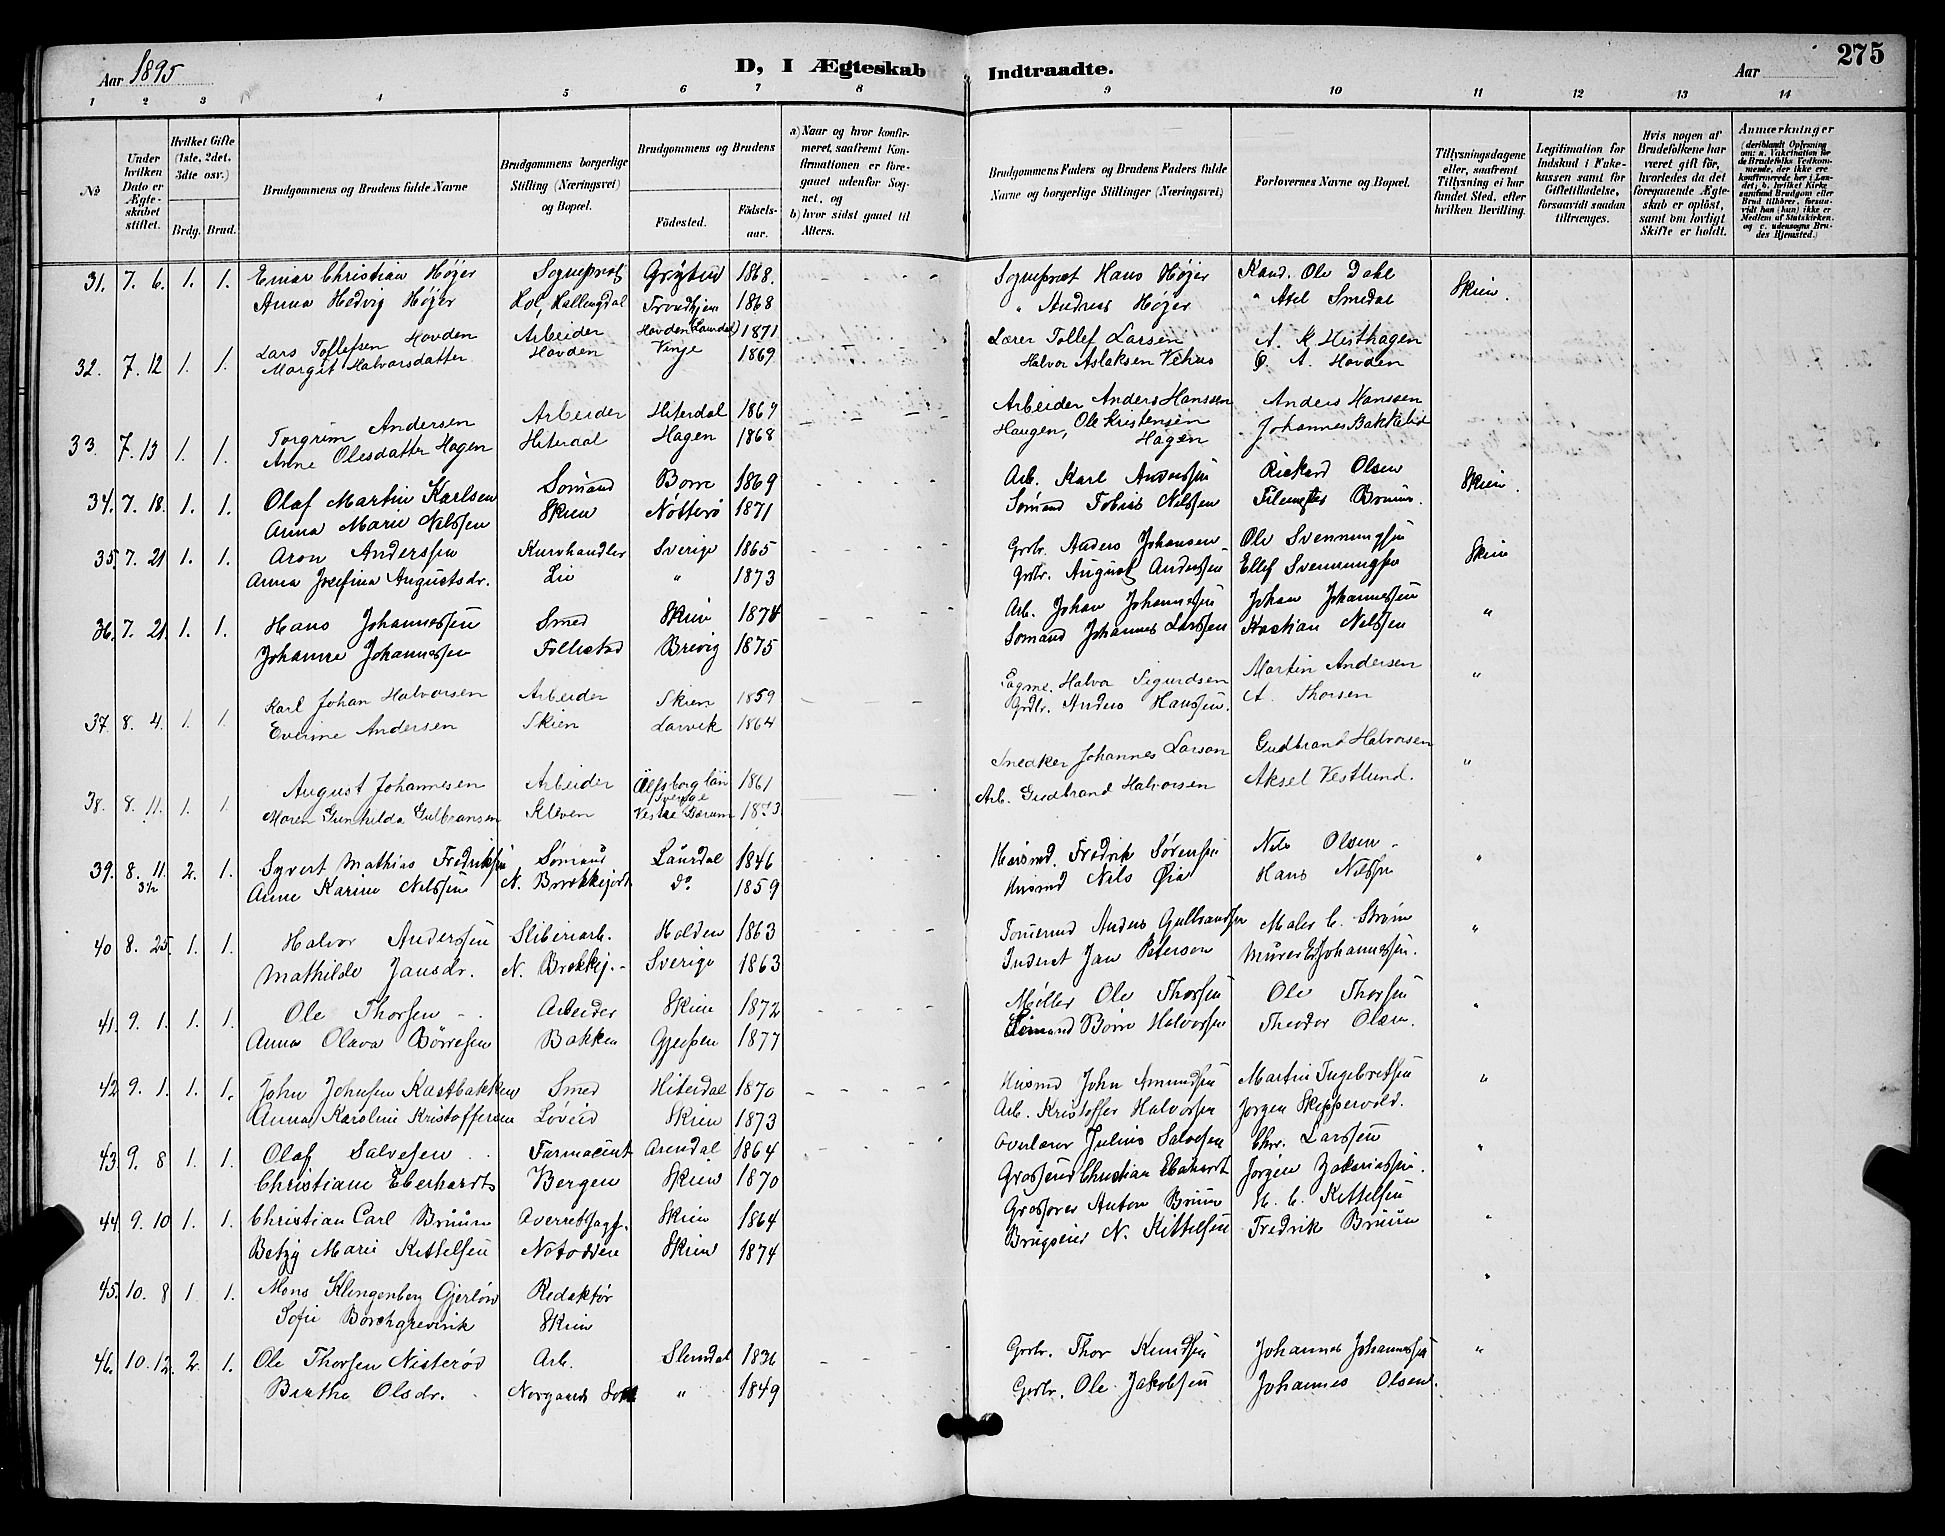 Aar 1895
D, I Ægteskab Indtraadte.
Aar
275
1 2 3 4 5 6 7 8 9 10 11 12 13 14
No
Under hvilken Dato er Ægteskabet stiftet.
Hvilket Gifte (1ste, 2det, 3dte osv.)
Brdg. Brud.
Brudgommens og Brudens fulde Navne
Brudgommens borgerlige Stilling (Næringsvei) og Bopæl.
Brudgommens og Brudens
Fødested.
Fødselsaar.
a) Naar og hvor konfirmeret, saafremt Konfirmationen er foregaaet udenfor Sognet, og
b) hvor sidst gaaet til Alters.
Brudgommens Faders og Brudens Faders fulde Navne og borgerlige Stillinger (Næringsvei)
Forlovernes Navne og Bopæl.
Tillysningsdagene eller, saafremt Tillysning ei har fundet Sted, efter hvilken Bevilling.
Legitimation for Indskud i Enkekassen samt for Giftetilladelse, forsaavidt saadan tiltrænges.
Hvis nogen af Brudefolkene har været gift før, hvorledes da det foregaaende Ægteskab er opløst, samt om lovligt Skifte er holdt.
Anmerkninger
(deriblandt Oplysning om: a. Vakcination for de Brudefolks Vedkommende, der ikke ere konfirmerede her i Landet; b. hvilket Kirkesamfund Brudgom eller Brud tilhører, forsaavidt han (hun) ikke er Medlem af Statskirken, og c. udensogns Brudes Hjemsted.)
31. 7. 6. 1. 1. Einar Christian Højer Sogneprest Grytten 1868. Sogneprest Hans Højer Kand. Ole Dahl Skien.
Anna Hedvig Højer Hol, Hallingdal Trondhjem 1868 " Andreas Højer " Axel Smedal
32. 7. 12 1. 1. Lars Tollefsen Hovden Arbeider Hovden (Laurdal) 1871 Lærer Tollef Larsen A. K. Hesthagen
Margit Halvorsdatter Hovden Vinje 1869 Halvor Aslaksen Vehus O. A. Hovden
33. 7. 13 1. 1. Torgrim Andersen Arbeider Hiterdal 1867 Arbeider Anders Hanssen Anders Hanssen
Anne Olesdatter Hagen Hiterdal Hagen 1868 Haugen, Ole Kristensen Hagen Johannes Bakkalid
34. 7. 18. 1. 1. Olaf Martin Karlsen Sømand Borre 1869 Arb. Karl Anderssen Rickard Olsen Skien.
Anna Marie Nilssen Skien Nøtterø 1871 Sømand Tobias Nilssen Filemester Bruun.
35. 7. 21 1. 1. Aron Anderssen Kurvhandler Sverige 1865 Grbr. Anders Johansen Ole Svenningsen Skien
Anna Josefina Augustsdr. Lie " 1873 Grbr. August Anderssen Ellef Svenningsen
36. 7. 21. 1. 1. Hans Johannessen Smed Skien 1874 Arb. Johan Johannessen Johan Johannessen "
Johanne Johannessen Follestad Brevig 1875 Sømand Johannes Larssen Kristian Nilssen
37. 8. 4. 1. 1. Karl Johan Halvorsen Arbeider Skien 1859 Sagme. Halvor Sigurdsen Martin Andersen "
Everine Andersen Skien Larvik 1864 Grdbr. Anders Hanssen. A. Thorsen
38. 8. 11. 1. 1. August Johannesen Arbeider Elfsborg län Sverige 1861 Snedker Johannes Larson Gudbrand Halvorsen "
Maren Gunhilda Gulbransen Kleven Vestre Bærum 1873 Arb. Gudbrand Halvorsen Aksel Vestlund.
39. 8. 11. 2. 1. Syvert Mathias Fredriksen Sømand Laurdal 1846 Husmd. Fredrik Sørensen Nils Olsen "
Anne Karine Nilssen N. Brekkejordet do 1859 Husmd Nils Øia Hans Nilssen
40 8. 25. 1. 1. Halvor Anderssen Sliberiarb. Holden 1863 Tømmermd Anders Gulbrandsen Maler C. Strøm "
Mathilde Jansdr. N. Brekkej. Sverige 1863 Inderst Jan Peterson Murer E. Johannessen.
41. 9. 1. 1. 1. Ole Thorsen Arbeider Skien 1872 Møller Ole Thorsen Ole Thorsen "
Anna Olava Børresen Bakken Gjerpen 1877 Sømand Børre Halvorsen Theodor Olsen.
42 9. 1. 1. 1. John Johnsen Kastbakken Smed Hiterdal 1870 Husmd John Amundsen Martin Ingebretsen "
Anna Karoline Kristoffersen Løveid Skien 1873 Arb. Kristoffer Halvorsen Jørgen Skippervold.
43. 9. 8 1. 1. Olaf Salvesen Farmaceut Arendal 1864 Overlærer Julius Salvesen Chr. Larssen "
Christiane Eberhardt Bergen Skien 1870 Grosserer Christian Eberhardt Jørgen Zakariassen.
44. 9. 10 1. 1. Christian Carl Bruun Overretssagf. Skien 1864 Grosserer Anton Bruun N. C. Kittelsen "
Betzy Marie Kittelsen Notodden Skien 1874 Brugseier N. Kittelsen Fredrik Bruun
45. 10. 8 1. 1. Mons Klingenberg Gjerløw Redaktør "
Sofie Borchgrevink Skien
46. 10. 12. 2. 1. Ole Thorsen Nisterød Arb. Slemdal 1836 Grbr. Thor Knudsen Johannes Johannessen "
Berthe Olsdr. " 1849 Grbr. Ole Jakobsen Johannes Olsen.